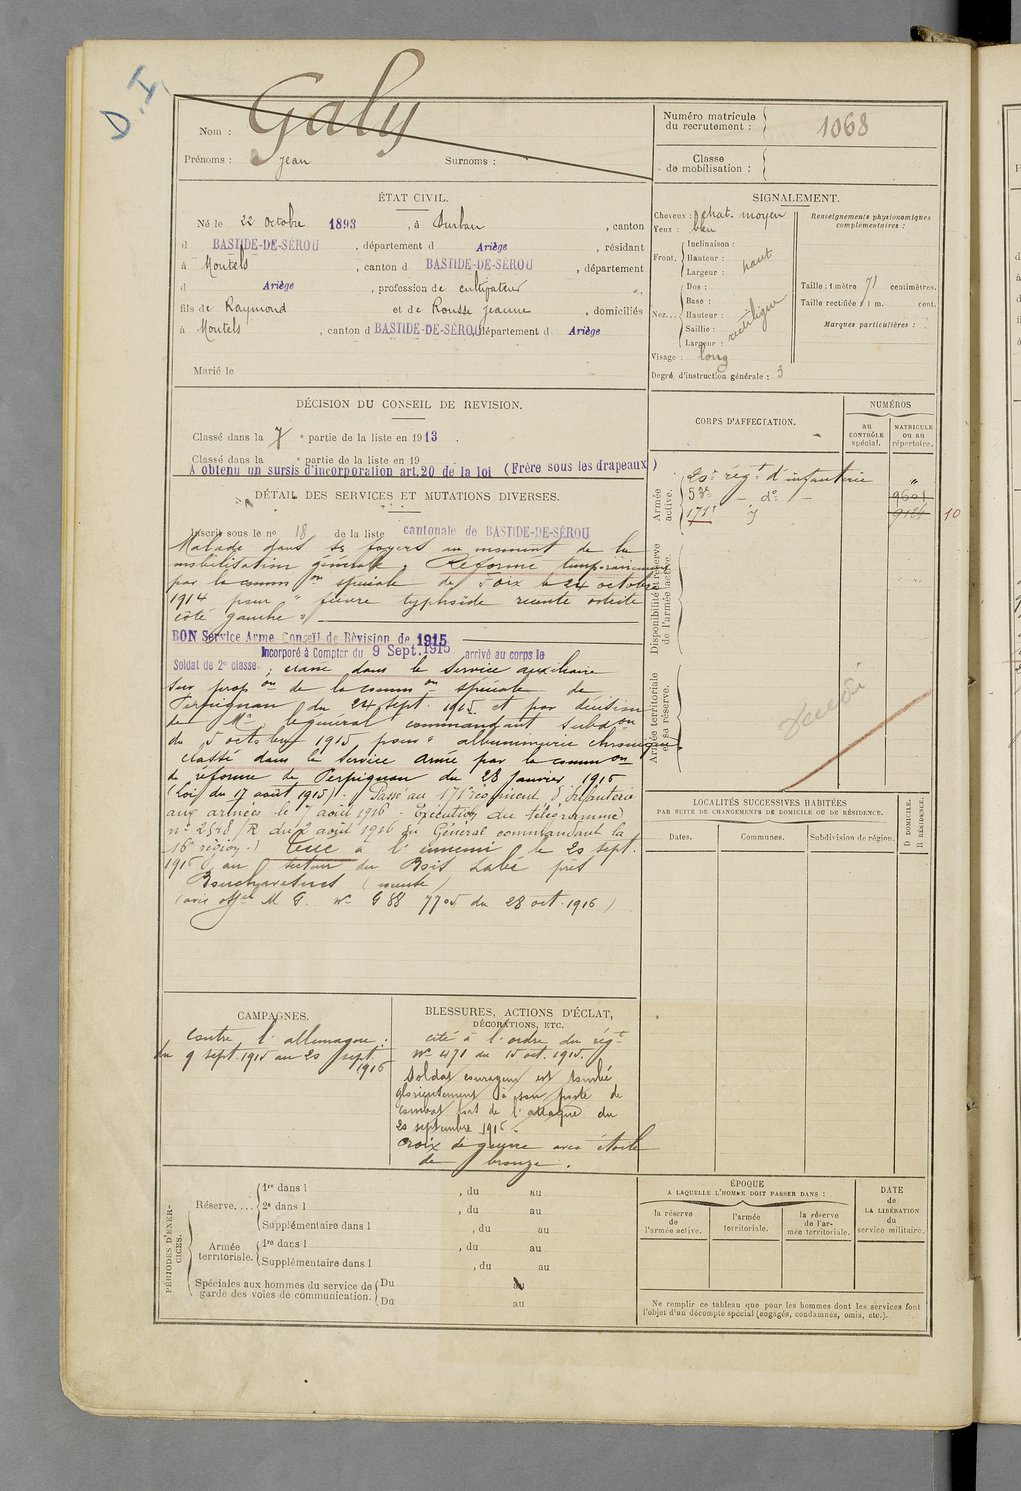 D.I
Nom : Galy
Prénoms : Jean Surnoms :
Numéro matricule du recrutement : 1068
Classe de mobilisation :
ÉTAT CIVIL.
Né le 22 Octobre 1893, à Durban, canton
d BASTIDE-DE-SÉROU, département d Ariège, résidant
à Montels, canton d BASTIDE-DE-SÉROU, département
d Ariège, profession de cultivateur
fils de Raymond et de Rousse Jeanne, domiciliés
à Montels, canton d BASTIDE-DE-SÉROU, département d Ariège
Marié le
SIGNALEMENT.
Cheveux : chat. moyen
Yeux : bleu
Front. Inclinaison :
Hauteur : haut
Largeur :
Nez... Dos :
Base :
Hauteur : rectiligne
Saillie :
Largeur :
Visage : long
Degré d'instruction générale : 3
Renseignements physionomiques complémentaires :
Taille : 1 mètre 71 centimètres.
Taille rectifiée 1 m. cent.
Marques particulières :
DÉCISION DU CONSEIL DE REVISION.
Classé dans la 7e partie de la liste en 1913.
Classé dans la e partie de la liste en 19
A obtenu un sursis d'incorporation art.20 de la loi (Frère sous les drapeaux)
DÉTAIL DES SERVICES ET MUTATIONS DIVERSES.
Inscrit sous le no 18 de la liste cantonale de BASTIDE-DE-SÉROU
Malade dans ses foyers au moment de la
mobilisation générale, Réformé temporairement
par la comm on spéciale de Foix le 24 octobre
1914 pour " fièvre typhoïde récente ostéite
côté gauche "
BON Service Armé Conseil de Révision de 1915
Incorporé à Compter du 9 Sept. 1915 arrivé au corps le
Soldat de 2e classe ; classé dans le Service auxiliaire
sur prop on de la comm on spéciale de
Perpignan du 24 sept. 1915 et par décision
de Mr le général commandant subdon
du 5 octobre 1915 pour " albuminurie chronique
classé dans le Service armé par la comm on
de réforme de Perpignan du 28 janvier 1916
(loi du 17 août 1915). Passé au 171e régiment d'Infanterie
aux armées le 7 août 1916. Exécution du télégramme
no 2528/R du 2 août 1916 du Général commandant la
16e région.) Tué à l'ennemi le 20 sept.
1916 au secteur du Bois Labé près
Bouchavesnes (
(avis offel M G. No G 88 77 du 28 oct. 1916)
CORPS D'AFFECTATION.
NUMÉROS
au CONTRÔLE spécial.
MATRICULE ou au répertoire.
Armée active.
régt d'infanterie "
53e - do - 9601
171e ij 9124 10
Disponibilité et réserve de l'armée active.
Armée territoriale et sa réserve.
LOCALITÉS SUCCESSIVES HABITÉES
PAR SUITE DE CHANGEMENTS DE DOMICILE OU DE RÉSIDENCE.
Dates. Communes. Subdivision de région. D DOMICILE. R RÉSIDENCE.
CAMPAGNES.
Contre l'allemagne :
du 9 sept. 1915 au 20 sept.
1916
BLESSURES, ACTIONS D'ÉCLAT,
DÉCORATIONS, ETC.
cité à l'ordre du régt
No 471 du 15 oct. 1916.
Soldat courageux est tombé
glorieusement à son poste de
combat lors de l'attaque du
20 septembre 1916.
Croix de guerre avec étoile
de bronze.
PÉRIODES D'EXERCICES.
Réserve.... 1re dans l , du au
2e dans l , du au
Supplémentaire dans l , du au
Armée territoriale. 1re dans l , du au
Supplémentaire dans l , du au
Spéciales aux hommes du service de garde des voies de communication. Du au
Du au
ÉPOQUE
A LAQUELLE L'HOMME DOIT PASSER DANS :
la réserve de l'armée active.
l'armée territoriale.
la réserve de l'armée territoriale.
DATE de LA LIBÉRATION du service militaire.
Ne remplir ce tableau que pour les hommes dont les services font
l'objet d'un décompte spécial (engagés, condamnés, omis, etc.).